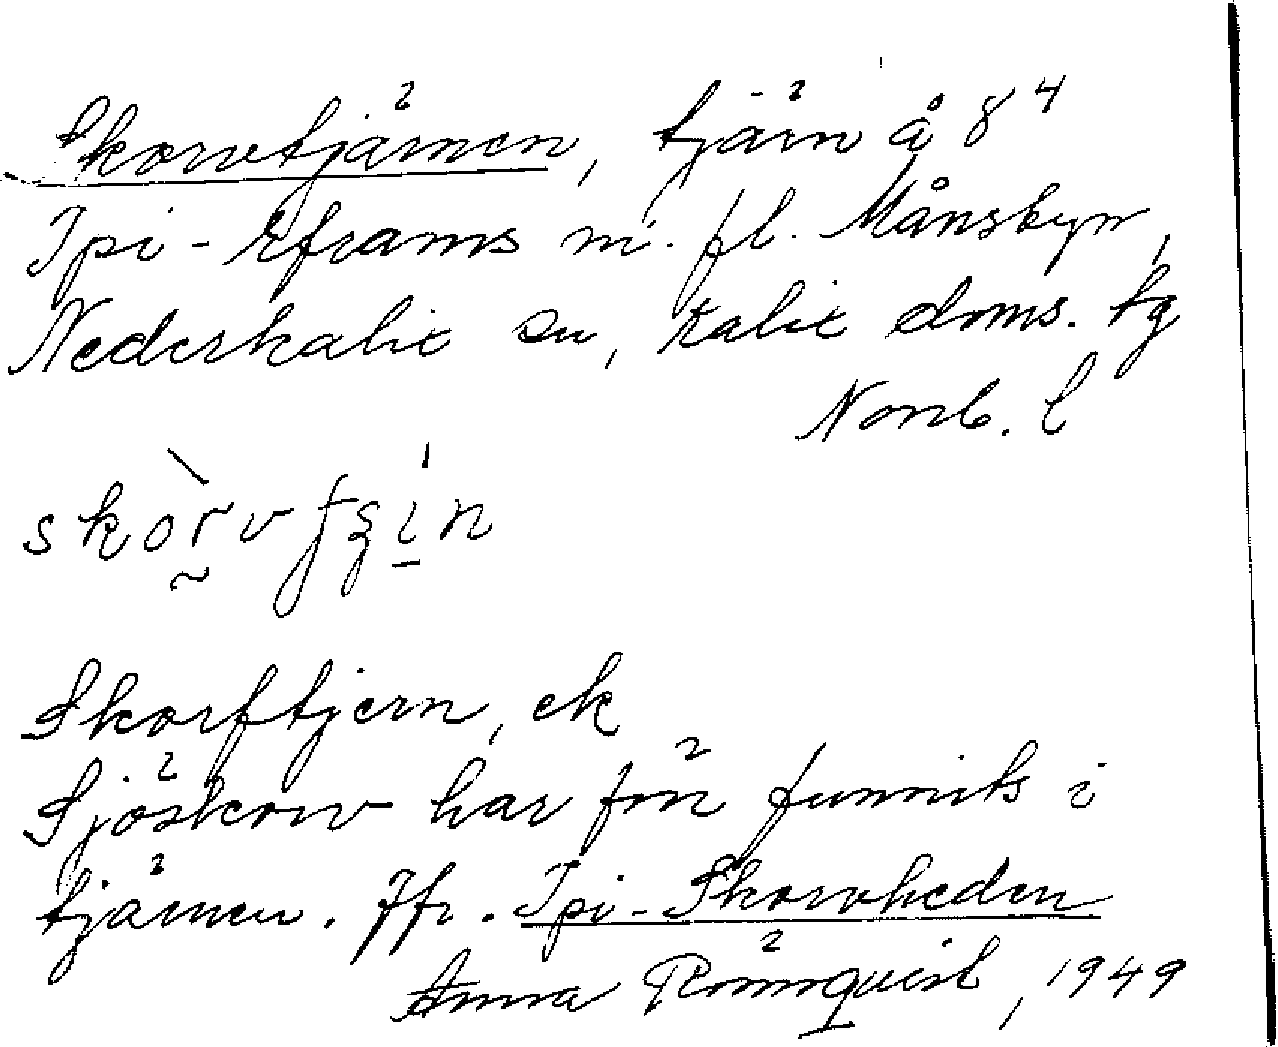 Skorvtjärnen, tjärn å 8⁴
Ipi-Eframs m. fl. Månsbyn,
Nederkalix sn, Kalix doms. tg
Norrb. l
Skorftjern, ek
Sjöskorv har förr funnits i
tjärnen. Jfr. Ipi-Skorvheden
Anna Rönnquist, 1949